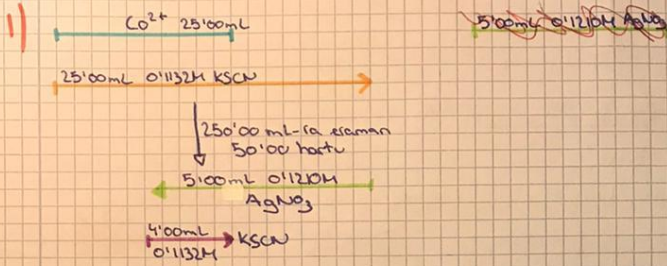 1)
Co²⁺ 25'00mL
5'00mL 0'1210M AgNO₃
25'00mL 0'1132M KSCN
250'00 mL-ra eraman
50'00 hartu
5'00mL 0'1210M
AgNO₃
4'00mL
KSCN
0'1132M